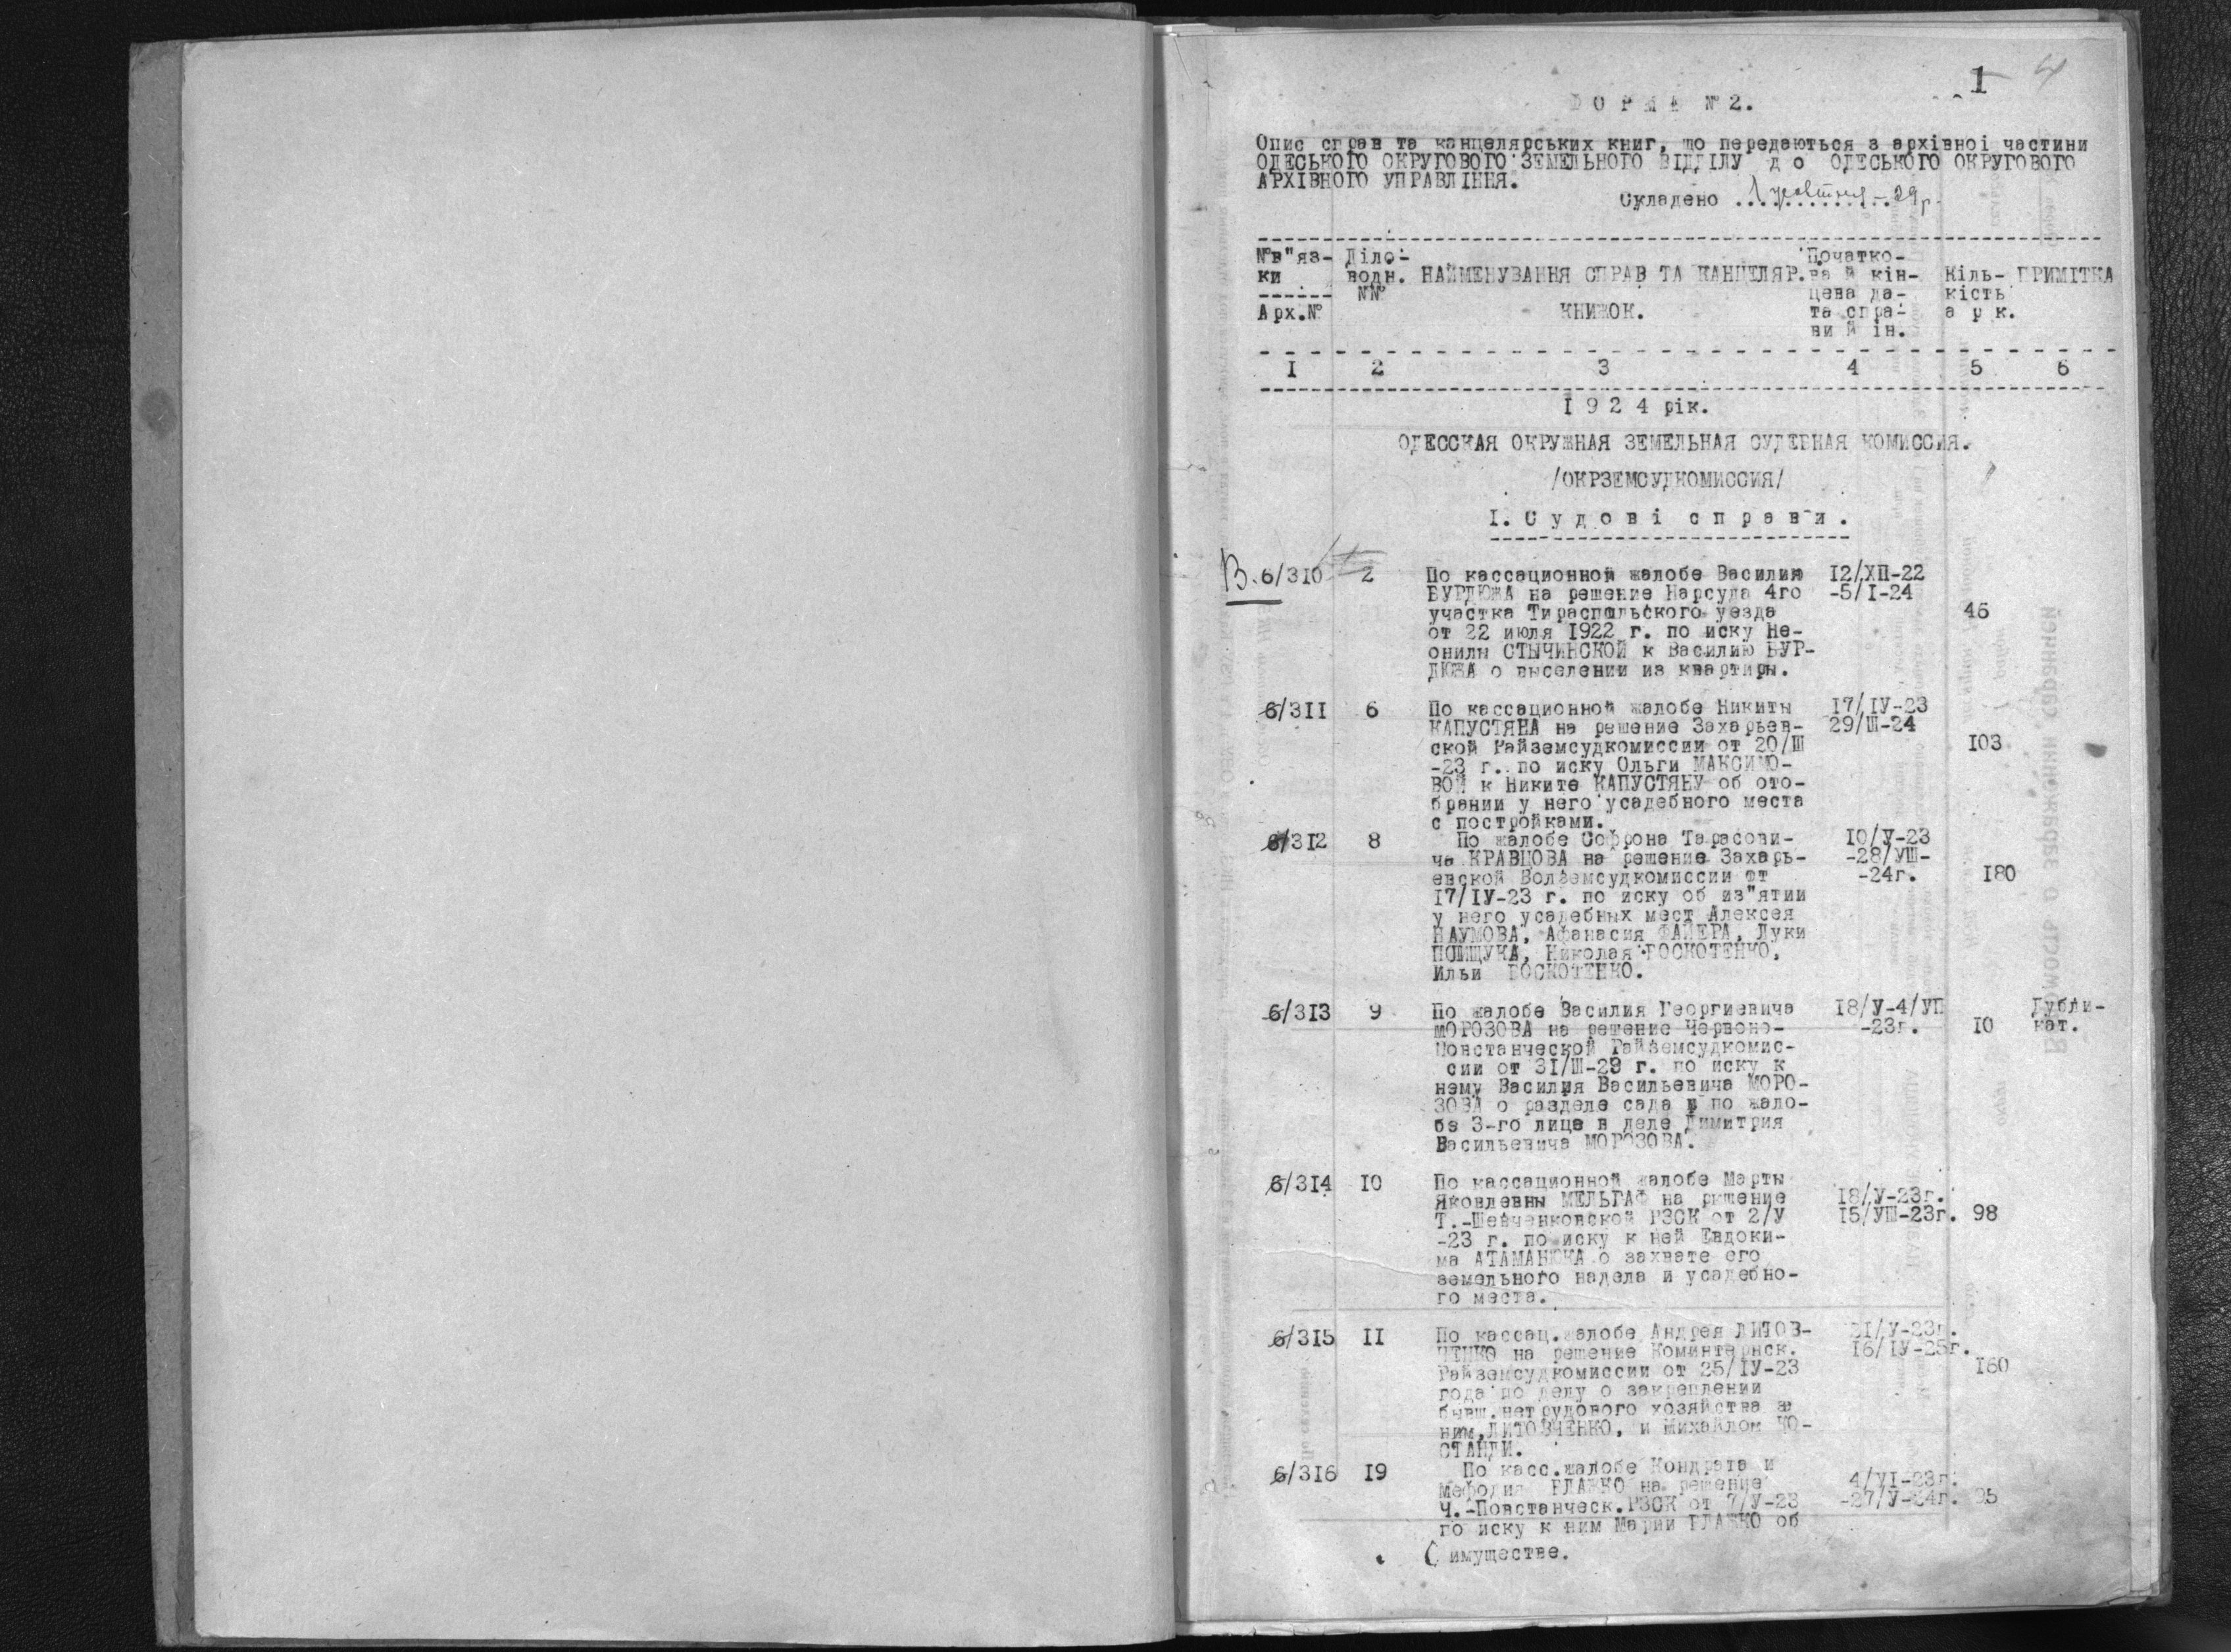 1 4
ФОРМА № 2.
Опис справ та канцелярських книг, що передаються з архівноі частини
ОДЕСЬКОГО ОКРУГОВОГО ЗЕМЕЛЬНОГО ВІДДІЛУ до ОДЕСЬКОГО ОКРУГОВОГО
АРХІВНОГО УПРАВЛІННЯ.
Складено 1 жовтня - 29 р.
№в"яз- Діло- Початко-
ки водн. НАЙМЕНУВАННЯ СПРАВ ТА КАНЦЕЛЯР. ва й кін- Кіль- ПРИМІТКА
------ №№ цева да- кість
Арх.№ КНИЖОК. та спра- а р к.
ви й ін.
I 2 3 4 5 6
I 9 2 4 рік.
ОДЕССКАЯ ОКРУЖНАЯ ЗЕМЕЛЬНАЯ СУДЕБНАЯ КОМИССИЯ.
/ОКРЗЕМСУДКОМИССИЯ/
I. С у д о в і с п р а в и .
В. 6/3I0 2 По кассационной жалобе Василия I2/ХП-22
БУРДЮЖА на решение Нарсуда 4го -5/I-24
участка Тираспольского уезда 46
от 22 июля I922 г. по иску Не-
онилы СТЫЧИНСКОЙ к Василию БУР-
ДЮЖА о выселении из квартиры.
6/3II 6 По кассационной жалобе Никиты I7/IУ-23
КАПУСТЯНА на решение Захарьев- 29/Ш-24
ской Райземсудкомиссии от 20/Ш I03
-23 г. по иску Ольги МАКСИМО-
ВОЙ к Никите КАПУСТЯНУ об ото-
брании у него усадебного места
с постройками.
6/3I2 8 По жалобе Софрона Тарасови- I0/У-23
ча КРАВЦОВА на решение Захарь- -28/УШ-
евской Волземсудкомиссии от -24г. I80
I7/IУ-23 г. по иску об из"ятии
у него усадебных мест Алексея
НАУМОВА, Афанасия ФАЛЕРА, Луки
ПОЛИЩУКА, Николая РОСКОТЕНКО,
Ильи РОСКОТЕНКО.
6/3I3 9 По жалобе Василия Георгиевича I8/У-4/УП Дубли-
МОРОЗОВА на решение Червоно- -23г. I0 кат.
Повстанческой Райземсудкомис-
сии от 3I/Ш-23 г. по иску к
нему Василия Васильевича МОРО-
ЗОВА о разделе сада и по жало-
бе 3-го лица в деле Димитрия
Васильевича МОРОЗОВА.
6/3I4 I0 По кассационной жалобе Марты
Яковлевны МЕЛЬГАФ на ришение I8/У-23г.
Т.-Шевченковской РЗСК от 2/У I5/УШ-23г. 98
-23 г. по иску к ней Евдоки-
ма АТАМАНЮКА о захвате его
земельного надела и усадебно-
го места.
6/3I5 II По кассац.жалобе Андрея ЛИТОВ- 2I/У-23г.
ЧЕНКО на решение Коминтернск. I6/IУ-25г.
Райземсудкомиссии от 25/IУ-23 I60
года по делу о закреплении
бывш.нетрудового хозяйства за
ним,ЛИТОВЧЕНКО, и Михайлом КО-
СТАНДИ.
6/3I6 I9 По касс.жалобе Кондрата и
Мефодия ГЛАЖКО на решение 4/УI-23г.
Ч.-Повстанческ.РЗСК от 7/У-23 -27/У-24г. 95
по иску к ним Марии ГЛАЖКО об
имуществе.